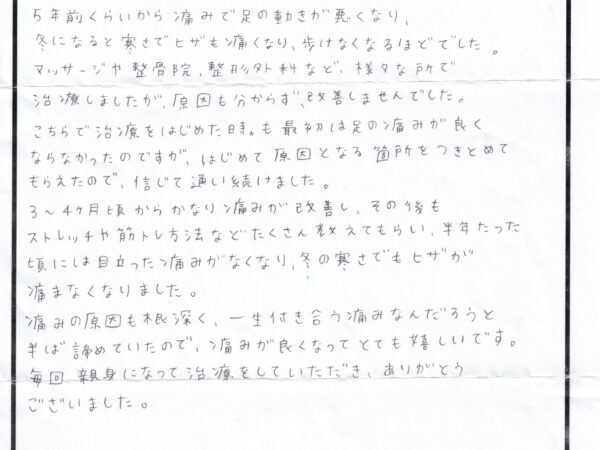 5年前くらいから痛みで足の動きが悪くなり、
冬になると寒さでヒザも痛くなり、歩けなくなるほどでした。
マッサージや整骨院、整形外科など、様々な所で
治療しましたが、原因も分からず、改善しませんでした。
こちらで治療をはじめた時も最初は足の痛みが良く
ならなかったのですが、はじめて原因となる箇所をつきとめて
もらえたので、信じて通い続けました。
3～4ヶ月頃からかなり痛みが改善し、その後も
ストレッチや筋トレ方法などたくさん教えてもらい、半年たった
頃には目立った痛みがなくなり、冬の寒さでもヒザが
痛まなくなりました。
痛みの原因も根深く、一生付き合う痛みなんだろうと
半ば諦めていたので、痛みが良くなってとても嬉しいです。
毎回親身になって治療をしていただき、ありがとう
ございました。